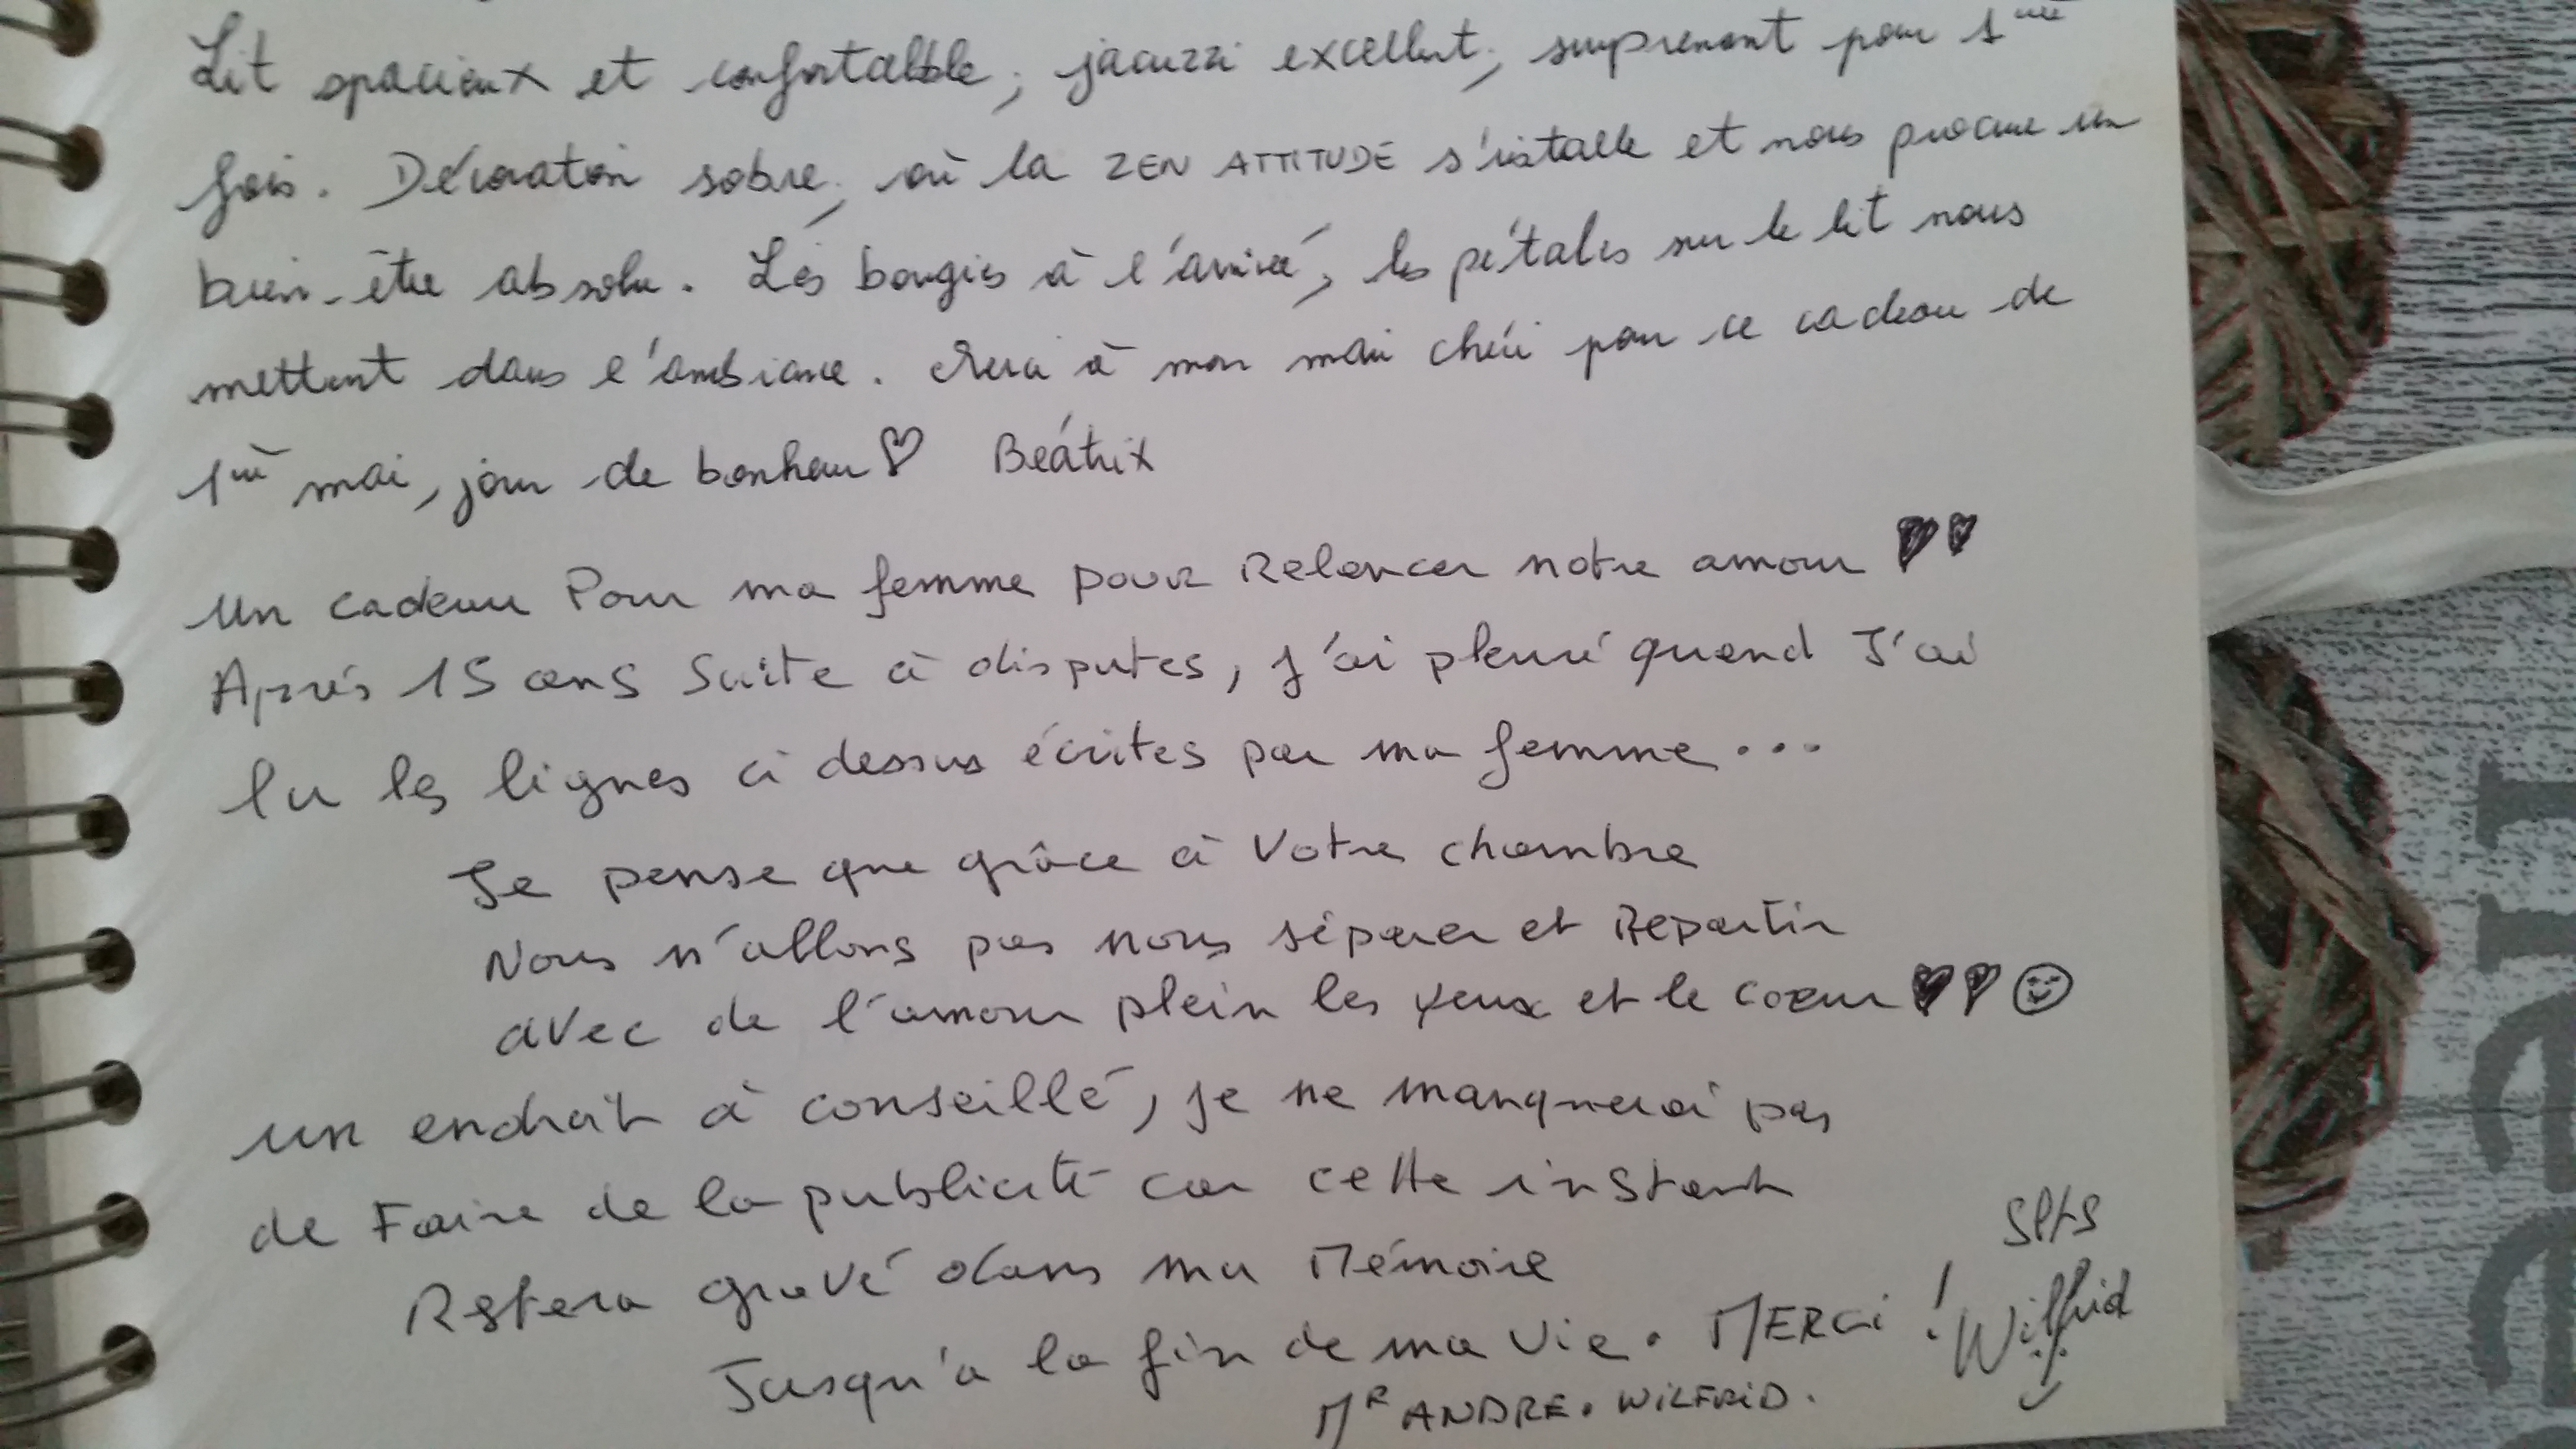 Lit spacieux et confortable, jacuzzi excellent, surprenant pour 1ère
fois. Décoration sobre, où la ZEN ATTITUDE s'installe et nous procure un
bien-être absolu. Les bougies à l'arrivé, les pétales sur le lit nous
mettent dans l'ambiance. Merci à mon mari chéri pour ce cadeau de
1er mai, jour de bonheur ♡ Béatrix
Un cadeau Pour ma femme pour Relancer notre amour ♥♥
Après 15 ans Suite à disputes, j'ai pleuré quand J'ai
lu les lignes ci dessus écrites par ma femme...
Je pense que grâce à Votre chambre
Nous n'allons pas nous séparer et Repartir
avec de l'amour plein les yeux et le coeur ♥♥☺
un endroit à conseillé, je ne manquerai pas
de Faire de la publicité car cette instant
Restera gravé dans ma Mémoire
Jusqu'a la fin de ma Vie. MERCi !
Wilfrid
Mr ANDRE. WiLFRiD.